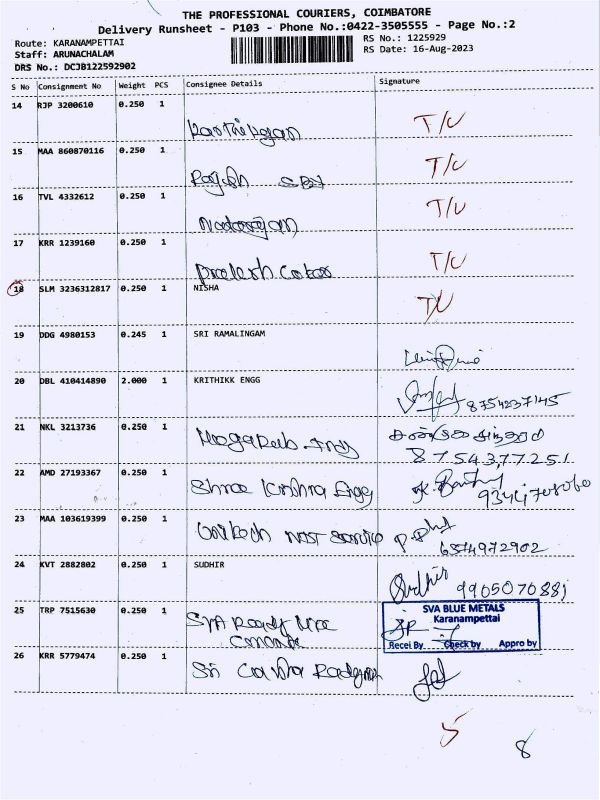 THE PROFESSIONAL COURIERS, COIMBATORE
Delivery Runsheet - P103 - Phone No.:0422-3505555 - Page No.:2
Route: KARANAMPETTAI RS No.: 1225929
Staff: ARUNACHALAM RS Date: 16-Aug-2023
DRS No.: DCJB122592902
S No Consignment No Weight PCS Consignee Details Signature
14 RJP 3200610 0.250 1
T/U
15 MAA 860870116 0.250 1
Rajesh T/U
16 TVL 4332612 0.250 1
Natarajan T/U
17 KRR 1239160 0.250 1
T/U
18 SLM 3236312817 0.250 1 NISHA
T/U
19 DDG 4980153 0.245 1 SRI RAMALINGAM
20 DBL 410414890 2.000 1 KRITHIKK ENGG
8754237145
21 NKL 3213736 0.250 1
8754377251
22 AMD 27193367 0.250 1
Shree Krishna Engg
23 MAA 103619399 0.250 1
6574972902
24 KVT 2882802 0.250 1 SUDHIR
Sudhir 9905070881
25 TRP 7515630 0.250 1
SVA Ready Mix
SVA BLUE METALS
Karanampettai
Recei By Check by Appro by
26 KRR 5779474 0.250 1
Sri
5
8